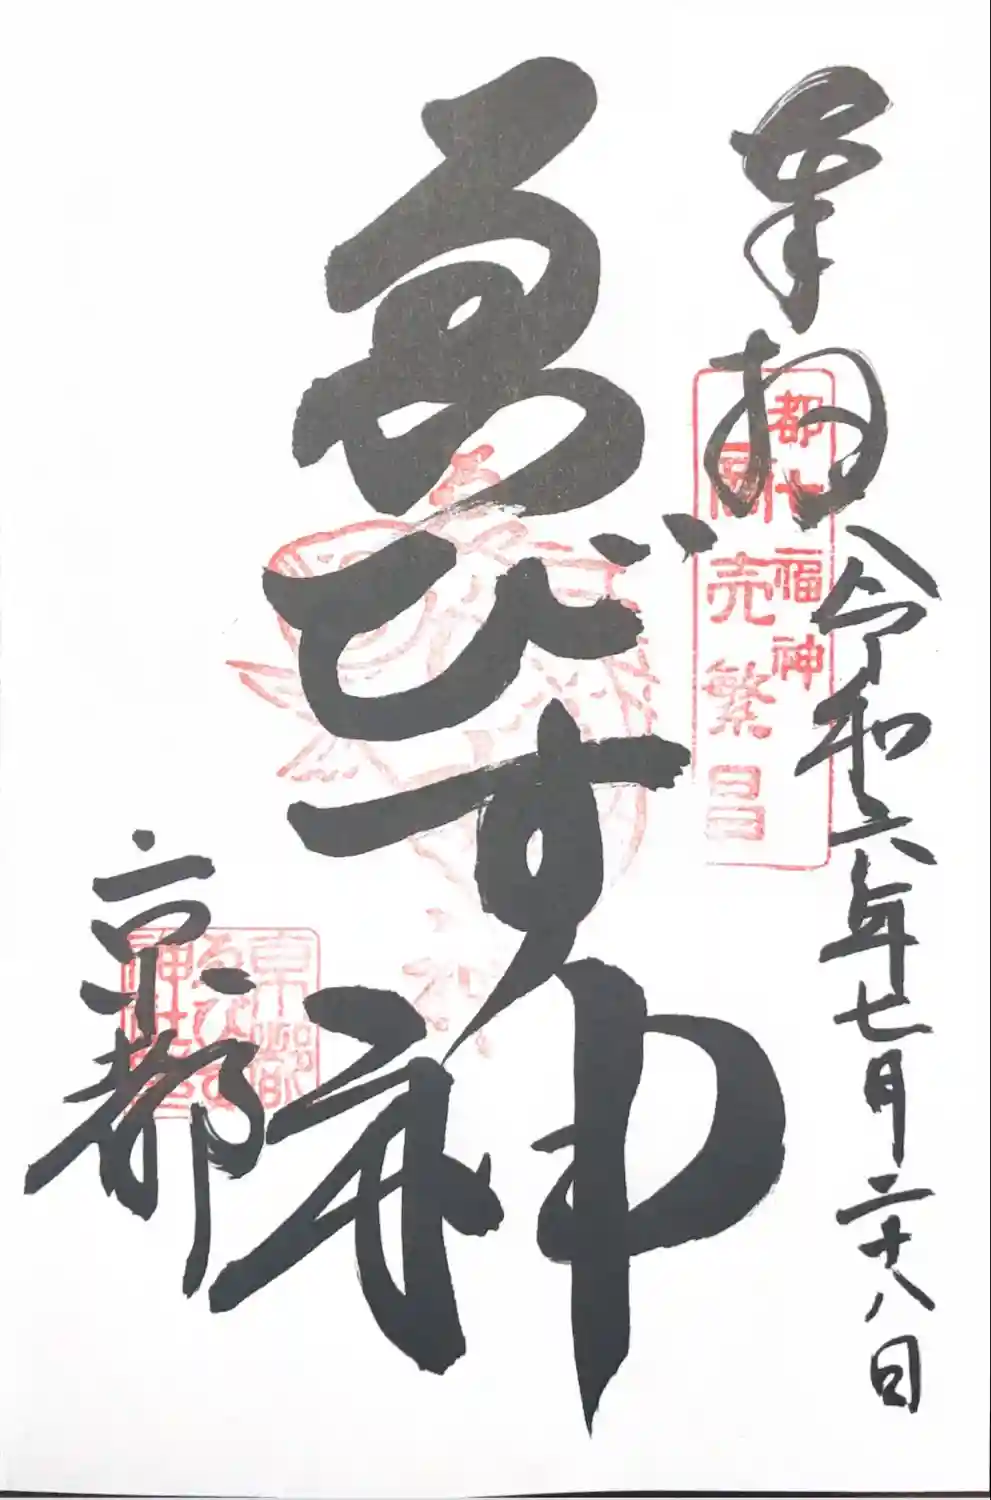 奉拝
令和六年七月二十八日
都七福神
商売繁昌
ゑびす神
京都
京都
ゑびす
神社